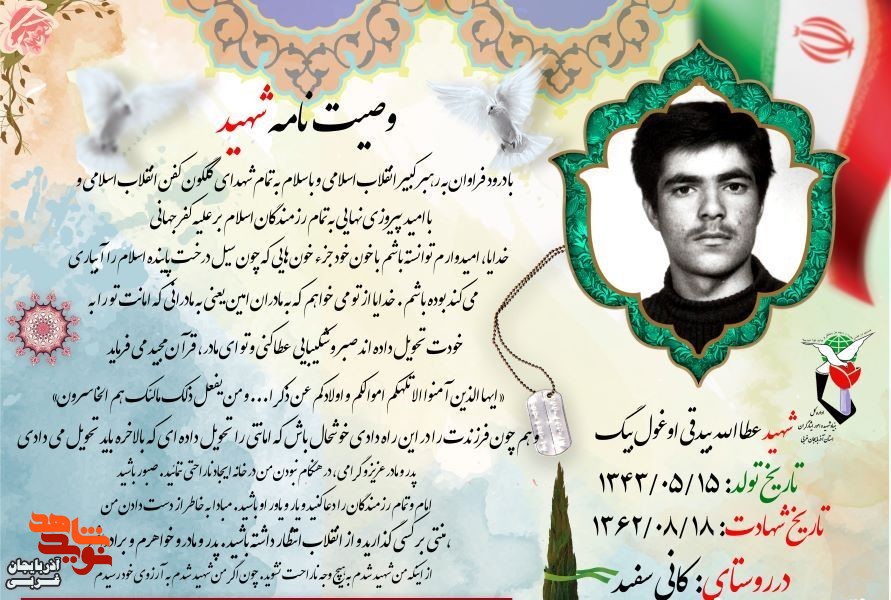 وصیت نامه شهید
با درود فراوان به رهبر کبیر انقلاب اسلامی و با سلام به تمام شهدای گلگون کفن انقلاب اسلامی و
با امید پیروزی نهایی به تمام رزمندگان اسلام بر علیه کفر جهانی
خدایا، امیدوارم توانسته باشم با خون خود جزء خون هایی که چون سیل درخت پاینده اسلام را آبیاری
می کند بوده باشم . خدایا از تو می خواهم که به مادران امین یعنی به مادرانی که امانت تو را به
خودت تحویل داده اند صبر و شکیبایی عطا کنی و تو ای مادر، قرآن مجید می فرماید
« ایها الذین آمنوا لا تلهکم اموالکم و اولادکم عن ذکر ا... و من یفعل ذلک مالنک هم الخاسرون»
و هم چون فرزندت را در این راه دادی خوشحال باش که امانتی را تحویل داده ای که بالاخره باید تحویل می دادی
پدر و مادر عزیز و گرامی، در هنگام نبودن من در خانه ایجاد ناراحتی ننمائید. صبور باشید
امام و تمام رزمندگان را دعا کنید و یار و یاور او باشید. مبادا به خاطر از دست دادن من
،منتی بر کسی گذارید و از انقلاب انتظار داشته باشید. پدر و مادر و خواهرم و براد
از اینکه من شهید شدم به هیچ وجه ناراحت نشوید. چون اگر من شهید شدم به آرزوی خود رسیدم
شهید عطاالله بیدقی اوغول بیگ
تاریخ تولد: ۱۳۴۳/۰۵/۱۵
تاریخ شهادت: ۱۳۶۲/۰۸/۱۸
در روستای: کانی سفید
اداره کل
بنیاد شهید و امور ایثارگران
استان آذربایجان غربی
نوید شاهد
آذربایجان
غربی